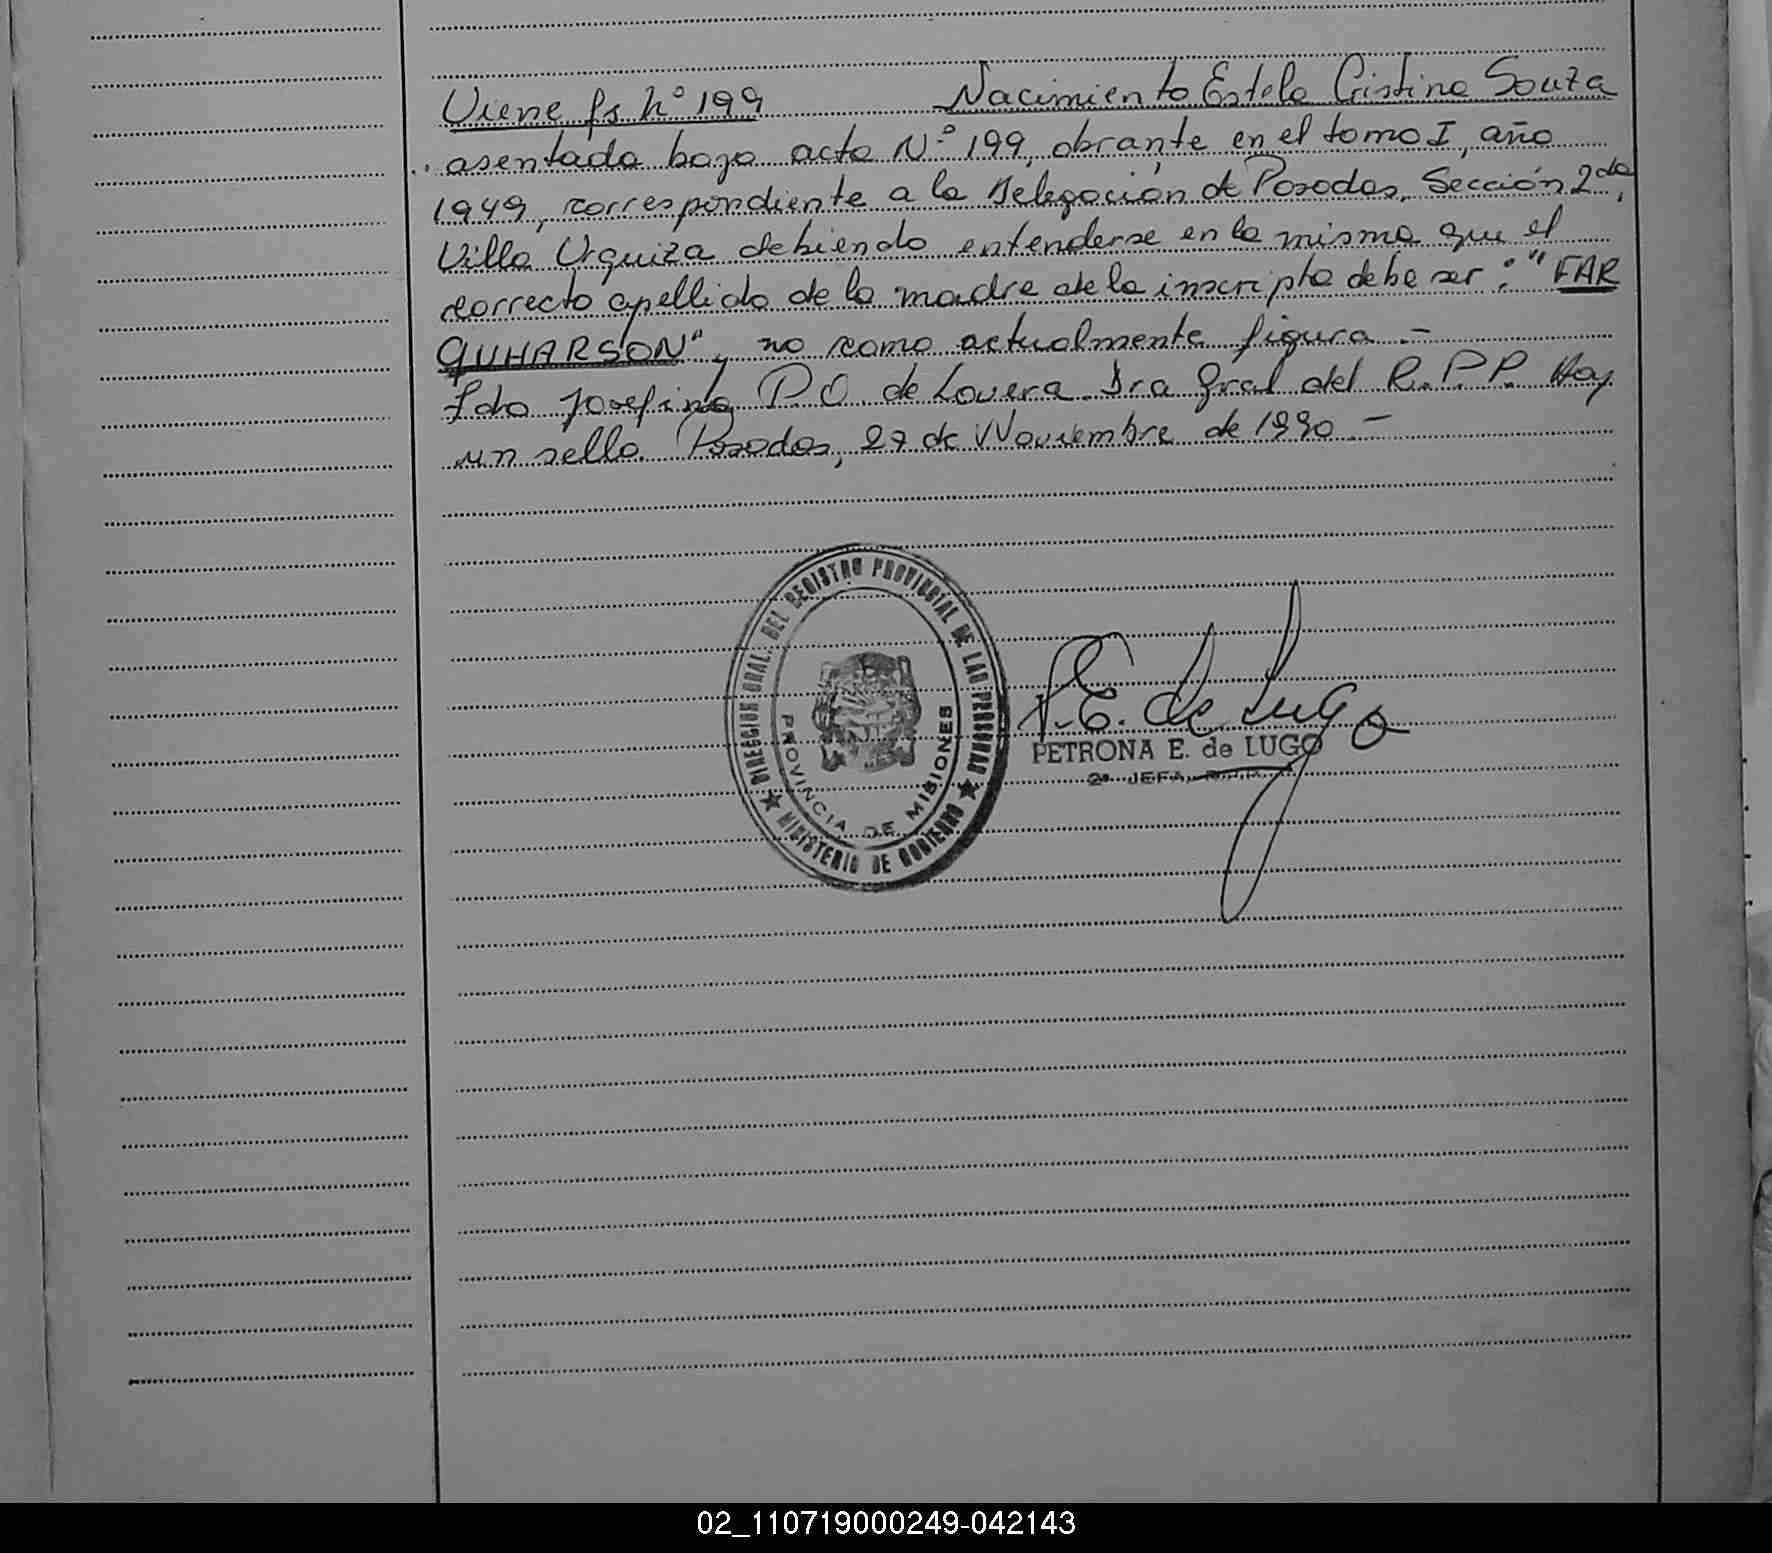 Viene fs Nº 199 Nacimiento Estela Cristina Souza
asentada bajo acta Nº 199, obrante en el tomo I, año
1949, correspondiente a la Delegación de Posadas, Sección 2da,
Villa Urquiza debiendo entenderse en la misma que el
correcto apellido de la madre de la inscripta debe ser: "FAR
QUHARSON", no como actualmente figura.-
Fdo Josefina P.O. de Lovera Dra Gral del R.P.P. Hay
un sello. Posadas, 27 de Noviembre de 1990.-
DIRECCION GRAL. DEL REGISTRO PROVINCIAL DE LAS PERSONAS
PROVINCIA DE MISIONES
MINISTERIO DE GOBIERNO
P.E. de Lugo
PETRONA E. de LUGO
2ª JEFA
02_110719000249-042143